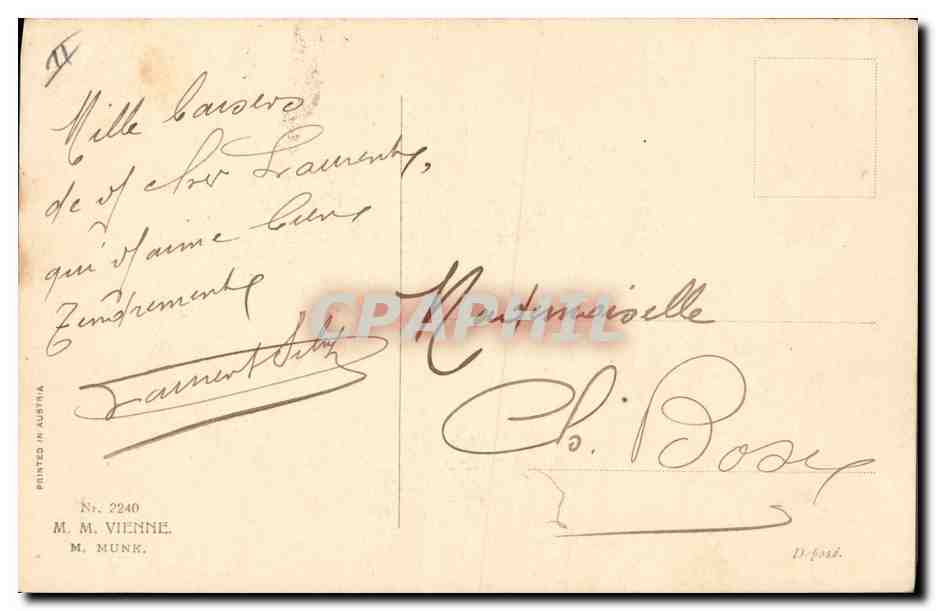 II
Mille baisers
de ton cher Laurent,
qui t'aime bien
Tendrement
Laurent
Mademoiselle
Ch. Bose
CPAPHIL
PRINTED IN AUSTRIA
Nr. 2240
M. M. VIENNE.
M. MUNK.
Déposé.